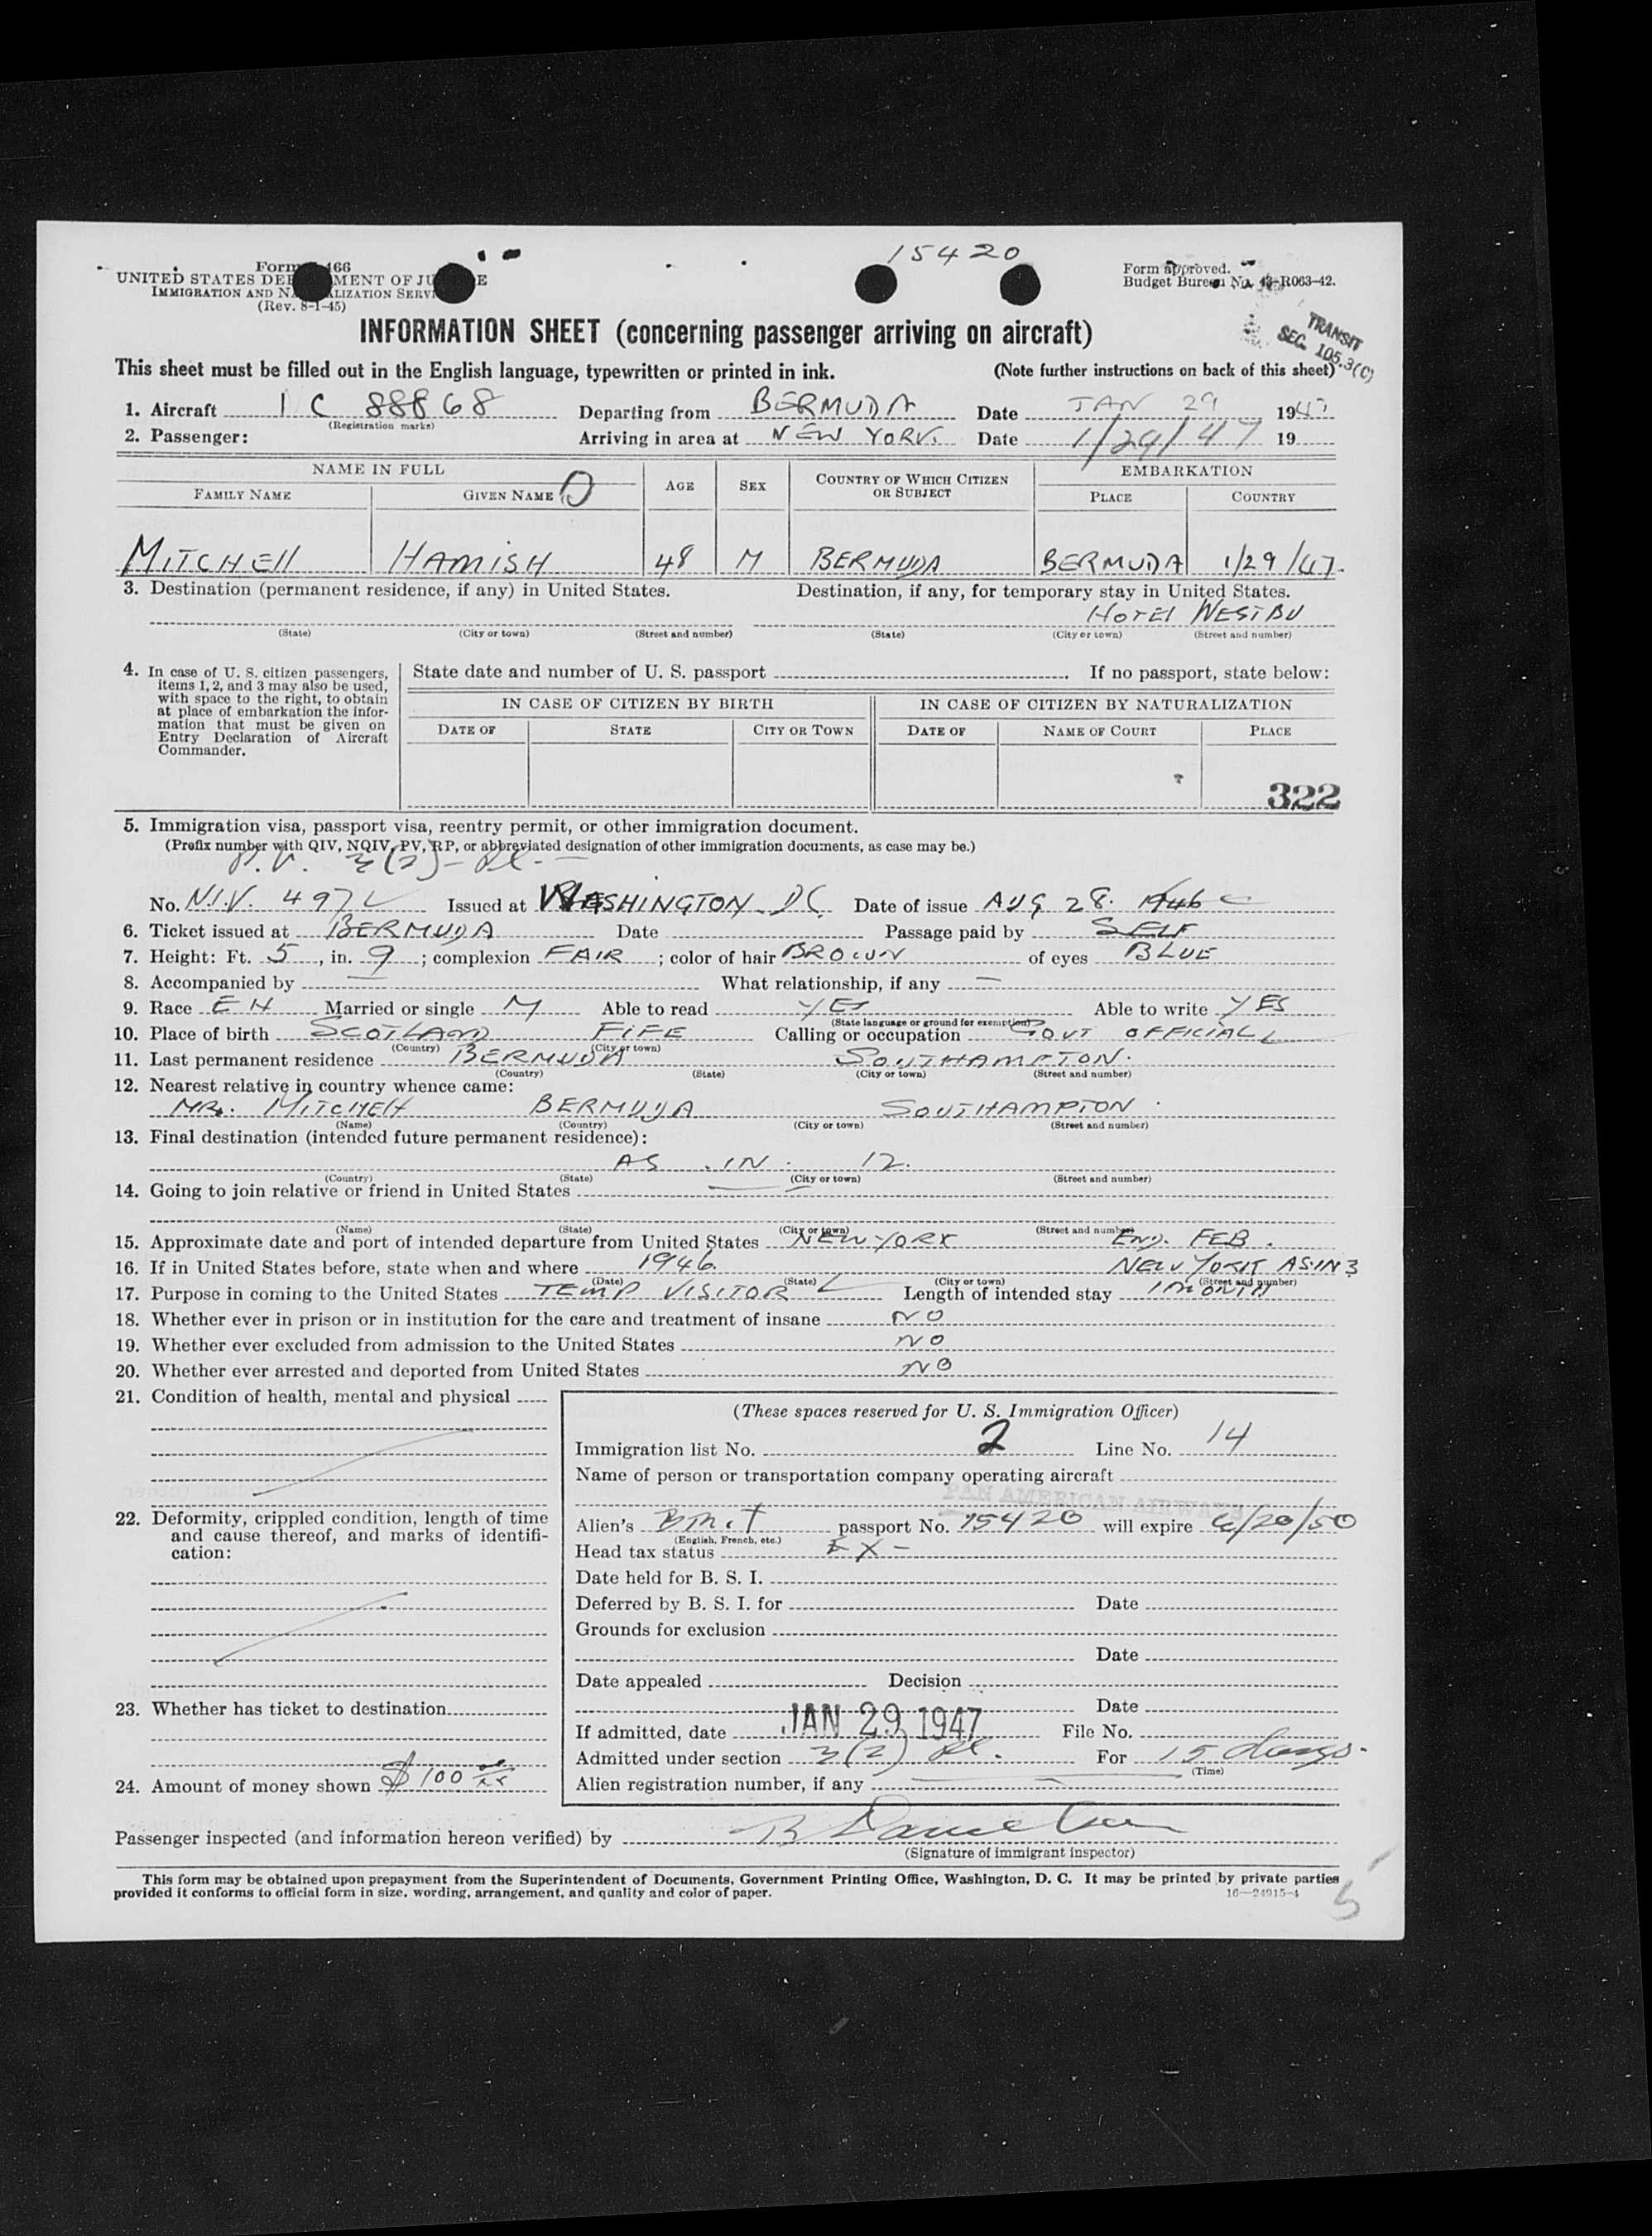 15420
Form 466
UNITED STATES DEPARTMENT OF JUSTICE
IMMIGRATION AND NATURALIZATION SERVICE
(Rev. 8-1-45)
Form approved.
Budget Bureau No. 43-R063-42.
TRANSIT
SEC. 105.3(C)
INFORMATION SHEET (concerning passenger arriving on aircraft)
This sheet must be filled out in the English language, typewritten or printed in ink. (Note further instructions on back of this sheet)
1. Aircraft 1 C 88868 Departing from BERMUDA Date JAN 29 1947
(Registration marks)
2. Passenger: Arriving in area at NEW YORK. Date 1/29/47 19
NAME IN FULL AGE SEX COUNTRY OF WHICH CITIZEN OR SUBJECT EMBARKATION
FAMILY NAME GIVEN NAME PLACE COUNTRY
MITCHELL HAMISH 48 M BERMUDA BERMUDA 1/29/47.
3. Destination (permanent residence, if any) in United States. Destination, if any, for temporary stay in United States.
HOTEL WESTBU
(State) (City or town) (Street and number) (State) (City or town) (Street and number)
4. In case of U. S. citizen passengers, items 1, 2, and 3 may also be used, with space to the right, to obtain at place of embarkation the information that must be given on Entry Declaration of Aircraft Commander.
State date and number of U. S. passport . If no passport, state below:
IN CASE OF CITIZEN BY BIRTH IN CASE OF CITIZEN BY NATURALIZATION
DATE OF STATE CITY OR TOWN DATE OF NAME OF COURT PLACE
322
5. Immigration visa, passport visa, reentry permit, or other immigration document.
(Prefix number with QIV, NQIV, PV, RP, or abbreviated designation of other immigration documents, as case may be.)
P.V. 3(2)
No. N.I.V. 497 Issued at WASHINGTON DC Date of issue AUG 28. 1946
6. Ticket issued at BERMUDA Date Passage paid by SELF
7. Height: Ft. 5, in. 9; complexion FAIR; color of hair BROWN of eyes BLUE
8. Accompanied by — What relationship, if any —
9. Race EN Married or single M Able to read YES Able to write YES
(State language or ground for exemption)
10. Place of birth SCOTLAND FIFE Calling or occupation GOVT OFFICIAL
(Country) (City or town)
11. Last permanent residence BERMUDA SOUTHAMPTON.
(Country) (State) (City or town) (Street and number)
12. Nearest relative in country whence came:
MRS. MITCHELL BERMUDA SOUTHAMPTON.
(Name) (Country) (City or town) (Street and number)
13. Final destination (intended future permanent residence):
AS IN 12.
(Country) (State) (City or town) (Street and number)
14. Going to join relative or friend in United States —
(Name) (State) (City or town) (Street and number)
15. Approximate date and port of intended departure from United States NEW YORK END. FEB.
16. If in United States before, state when and where 1946. NEW YORK AS IN 3
(Date) (State) (City or town) (Street and number)
17. Purpose in coming to the United States TEMP VISITOR Length of intended stay 1 MONTH
18. Whether ever in prison or in institution for the care and treatment of insane NO
19. Whether ever excluded from admission to the United States NO
20. Whether ever arrested and deported from United States NO
21. Condition of health, mental and physical
22. Deformity, crippled condition, length of time and cause thereof, and marks of identification:
23. Whether has ticket to destination
24. Amount of money shown $100
(These spaces reserved for U. S. Immigration Officer)
Immigration list No. 2 Line No. 14
Name of person or transportation company operating aircraft
PAN AMERICAN AIRWAYS
Alien's Brit passport No. 15420 will expire 6/20/50
(English, French, etc.)
Head tax status EX-
Date held for B. S. I.
Deferred by B. S. I. for Date
Grounds for exclusion
Date
Date appealed Decision
Date
If admitted, date JAN 29 1947 File No.
Admitted under section 3(2) For 15 days.
(Time)
Alien registration number, if any
Passenger inspected (and information hereon verified) by
(Signature of immigrant inspector)
This form may be obtained upon prepayment from the Superintendent of Documents, Government Printing Office, Washington, D. C. It may be printed by private parties
provided it conforms to official form in size, wording, arrangement, and quality and color of paper. 16—24915-4
5